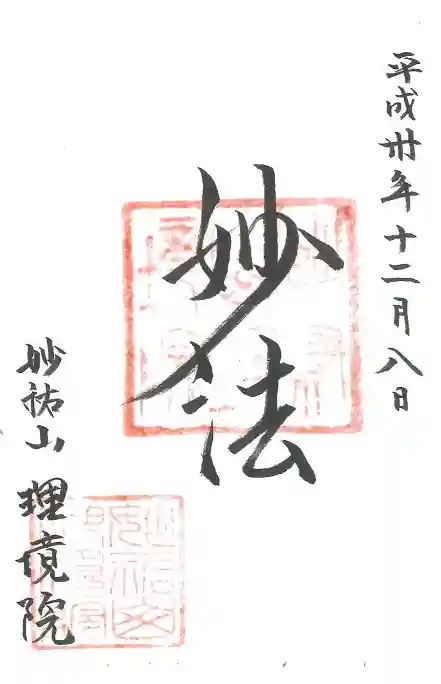 平成卅年十二月八日
妙法
妙祐山 理境院